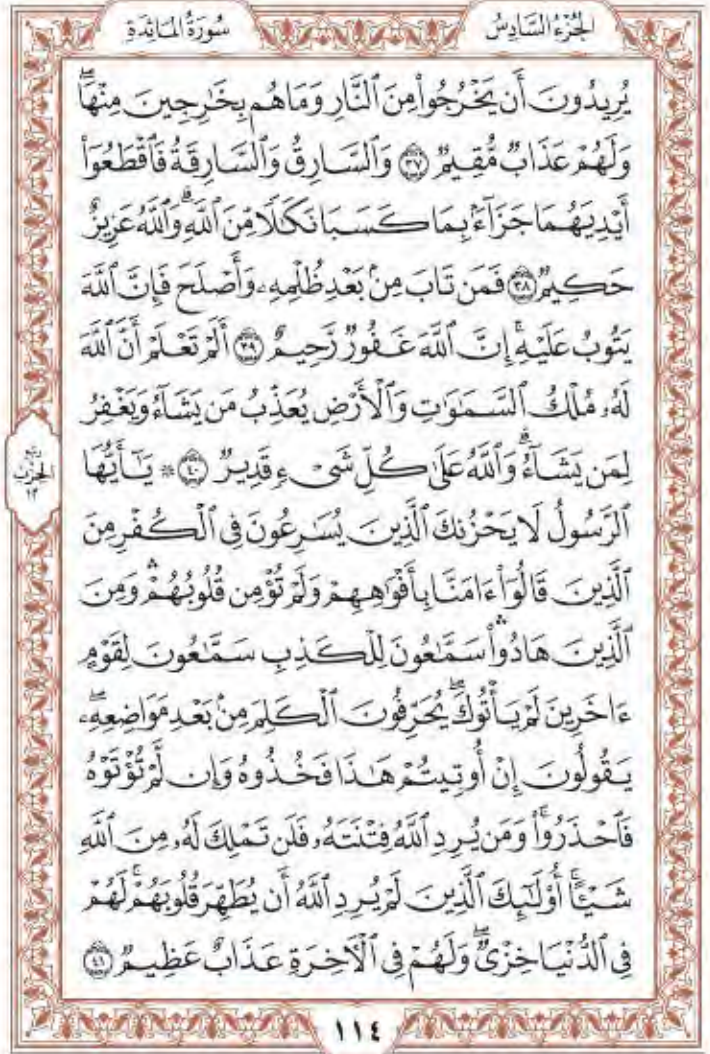 الجُزْءُ السَّادِسُ
سُورَةُ المَائِدَةِ
يُرِيدُونَ أَن يَخْرُجُواْ مِنَ ٱلنَّارِ وَمَا هُم بِخَٰرِجِينَ مِنْهَاۖ
وَلَهُمْ عَذَابٌ مُّقِيمٌ ٣٧ وَٱلسَّارِقُ وَٱلسَّارِقَةُ فَٱقْطَعُوٓاْ
أَيْدِيَهُمَا جَزَآءَۢ بِمَا كَسَبَا نَكَٰلًا مِّنَ ٱللَّهِۗ وَٱللَّهُ عَزِيزٌ
حَكِيمٌ ٣٨ فَمَن تَابَ مِنۢ بَعْدِ ظُلْمِهِۦ وَأَصْلَحَ فَإِنَّ ٱللَّهَ
يَتُوبُ عَلَيْهِۚ إِنَّ ٱللَّهَ غَفُورٌ رَّحِيمٌ ٣٩ أَلَمْ تَعْلَمْ أَنَّ ٱللَّهَ
لَهُۥ مُلْكُ ٱلسَّمَٰوَٰتِ وَٱلْأَرْضِ يُعَذِّبُ مَن يَشَآءُ وَيَغْفِرُ
لِمَن يَشَآءُۗ وَٱللَّهُ عَلَىٰ كُلِّ شَىْءٍ قَدِيرٌ ٤٠ ۞ يَٰٓأَيُّهَا
ٱلرَّسُولُ لَا يَحْزُنكَ ٱلَّذِينَ يُسَٰرِعُونَ فِى ٱلْكُفْرِ مِنَ
ٱلَّذِينَ قَالُوٓاْ ءَامَنَّا بِأَفْوَٰهِهِمْ وَلَمْ تُؤْمِن قُلُوبُهُمْۛ وَمِنَ
ٱلَّذِينَ هَادُواْۛ سَمَّٰعُونَ لِلْكَذِبِ سَمَّٰعُونَ لِقَوْمٍ
ءَاخَرِينَ لَمْ يَأْتُوكَۖ يُحَرِّفُونَ ٱلْكَلِمَ مِنۢ بَعْدِ مَوَاضِعِهِۦۖ
يَقُولُونَ إِنْ أُوتِيتُمْ هَٰذَا فَخُذُوهُ وَإِن لَّمْ تُؤْتَوْهُ
فَٱحْذَرُواْۚ وَمَن يُرِدِ ٱللَّهُ فِتْنَتَهُۥ فَلَن تَمْلِكَ لَهُۥ مِنَ ٱللَّهِ
شَيْـًٔاۚ أُوْلَٰٓئِكَ ٱلَّذِينَ لَمْ يُرِدِ ٱللَّهُ أَن يُطَهِّرَ قُلُوبَهُمْۚ لَهُمْ
فِى ٱلدُّنْيَا خِزْىٌۖ وَلَهُمْ فِى ٱلْءَاخِرَةِ عَذَابٌ عَظِيمٌ ٤١
ربع
الحزب
١٢
١١٤